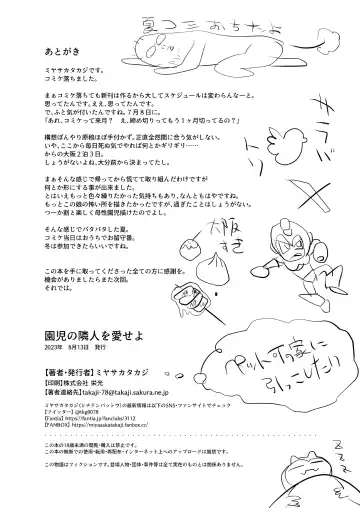 夏コミおちたよ
あとがき
ミヤサカタカジです。
コミケ落ちました。
まぁコミケ落ちても新刊は作るから大してスケジュールは変わらんなーと。
思ってたんです。ええ、思ってたんです。
で、ふと気が付いたんですね。7月8日に。
「あれ、コミケって来月？　え、締め切りってもう1ヶ月切ってるの？」
構想ぼんやり原稿ほぼ手付かず。正直全然間に合う気がしない。
いや、ここから毎日死ぬ気でやれば何とかギリギリ……
からの大阪2泊3日。
しょうがないよね、大分前から決まってたし。
まぁそんな感じで帰ってから慌てて取り組んだわけですが
何とか形にする事が出来ました。
とはいえもっと色々練りたかった気持ちもあり、なんともはやですね。
もっとこの娘の怖い所を描きたかったですが、過ぎたことはしょうがない。
つーか割と楽しく母性園児描けたのでよし。
そんな感じでバタバタした夏。
コミケ当日はおうちでお留守番。
冬は参加できたらいいですね。
この本を手に取ってくださった全ての方に感謝を。
機会がありましたらまた次回。
それでは。
大阪
すき
園児の隣人を愛せよ
2023年　8月13日　発行
【著者・発行者】ミヤサカタカジ
【印刷】株式会社 栄光
【著者連絡先】takaji-78@takaji.sakura.ne.jp
ミヤサカタカジ(シチテンバットウ)の最新情報は以下のSNS・ファンサイトでチェック
【ツイッター】@tkg8078
【Fantia】https://fantia.jp/fanclubs/3112
【FANBOX】https://miyasakatakaji.fanbox.cc/
この本の18歳未満の閲覧・購入は禁止です。
この本の無断での使用・転用・再配布・インターネット上へのアップロードは厳禁です。
この物語はフィクションです。登場人物・団体・事件等は全て実在のものとは関係ありません。
ペット可の家に
引っこしたい